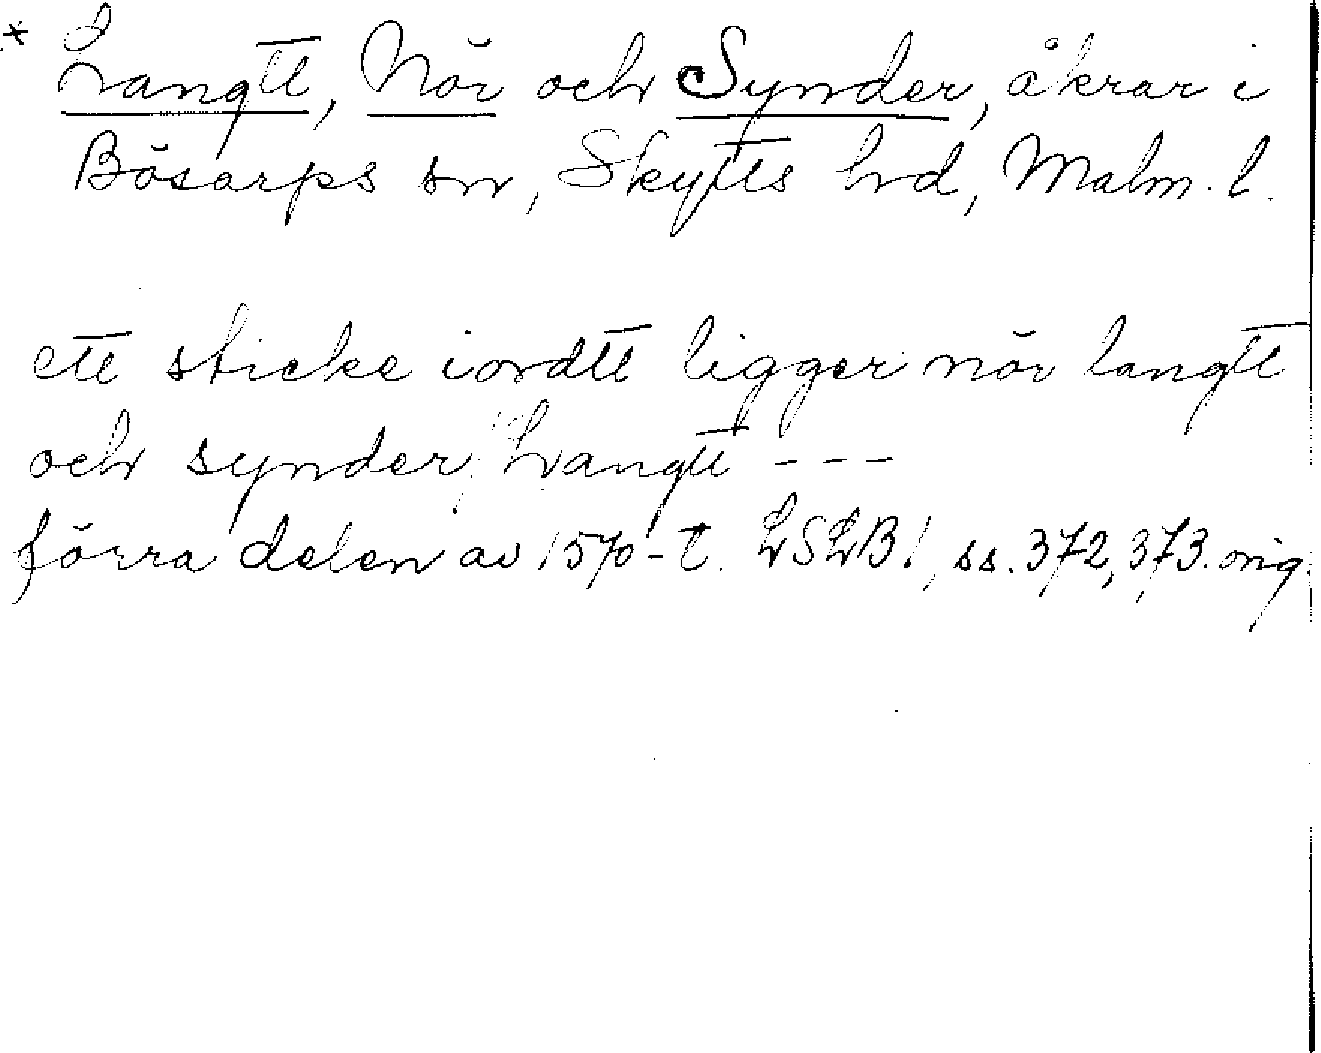 * Langtt, Nör och Synder, åkrar i
Bösarps sn, Skytts hd, Malm. l.
ett sticke iordtt ligger nör langtt
och synder, Langtt ---
förra delen av 1570-t. LSLB 1, ss. 372, 373. orig.